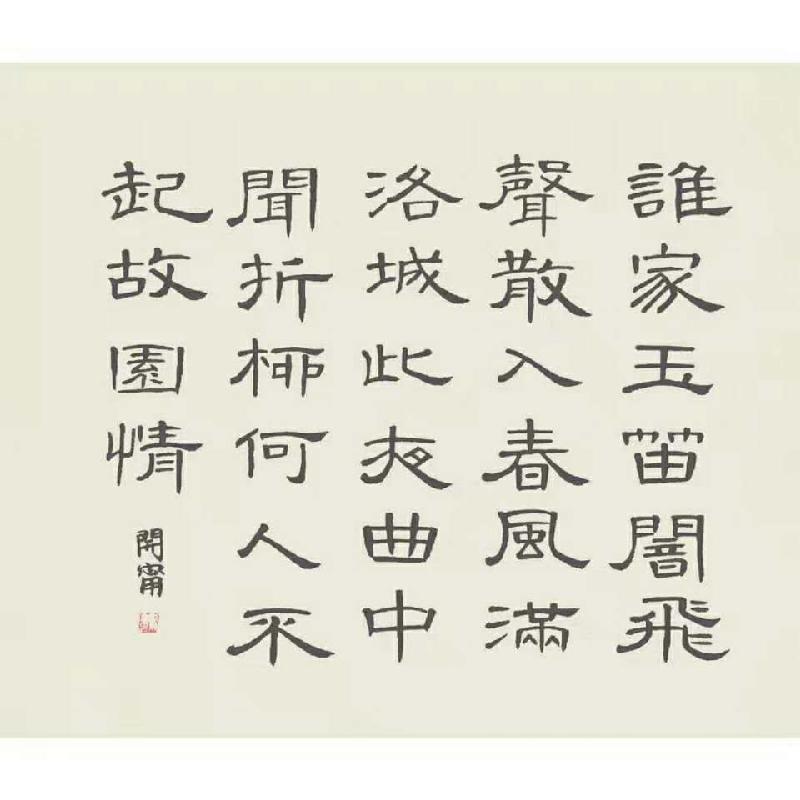 誰家玉笛闇飛
聲散入春風滿
洛城此夜曲中
聞折柳何人不
起故園情
開甯